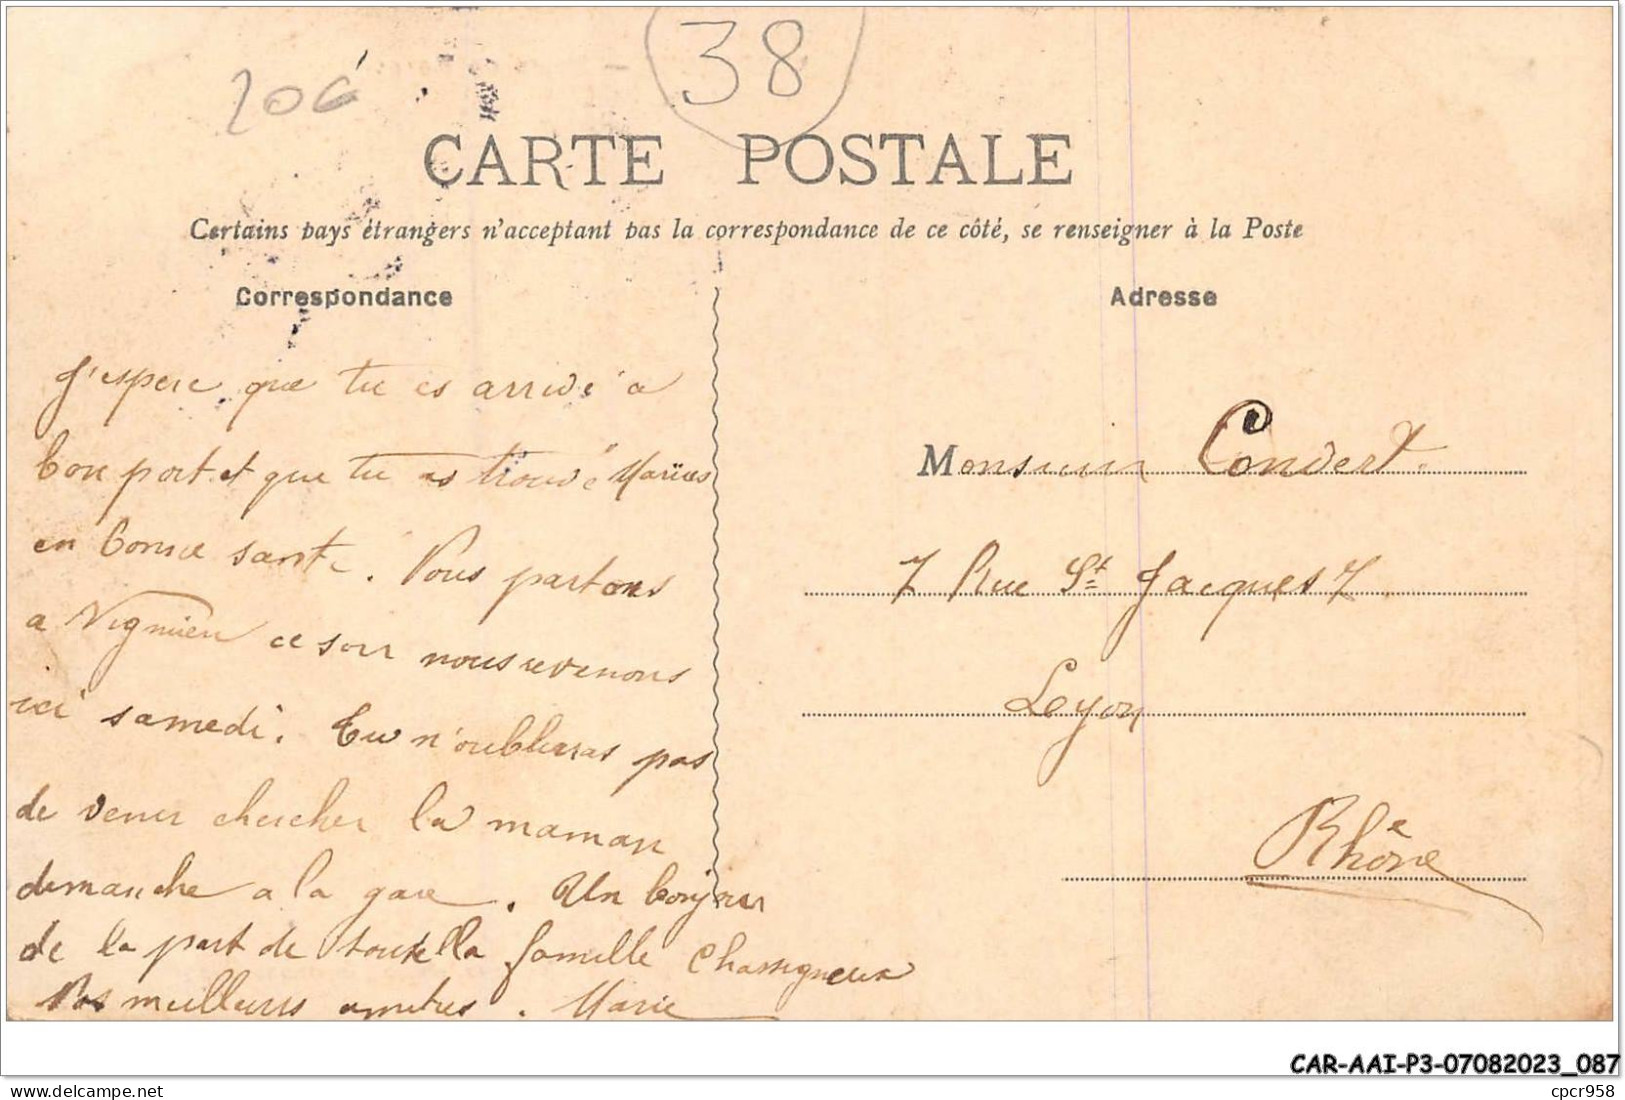 206
38
CARTE POSTALE
Certains pays étrangers n'acceptent pas la correspondance de ce côté, se renseigner à la Poste
Correspondance
Adresse
J'espere que tu es arrivé a
bon port et que tu as trouvé Marius
en bonne santé. Nous partons
a Vignieu ce soir nous revenons
ici samedi. Tu n'oublieras pas
de venir chercher la maman
dimanche a la gare. Un bonjour
de la part de toute lla famille Chassigneux
Nos meilleurs amitiés. Marie
Monsieur Convert.
7 Rue St Jacques 7
Leyon
Rhône
CAR-AAI-P3-07082023_087
www.delcampe.net
cpcr958